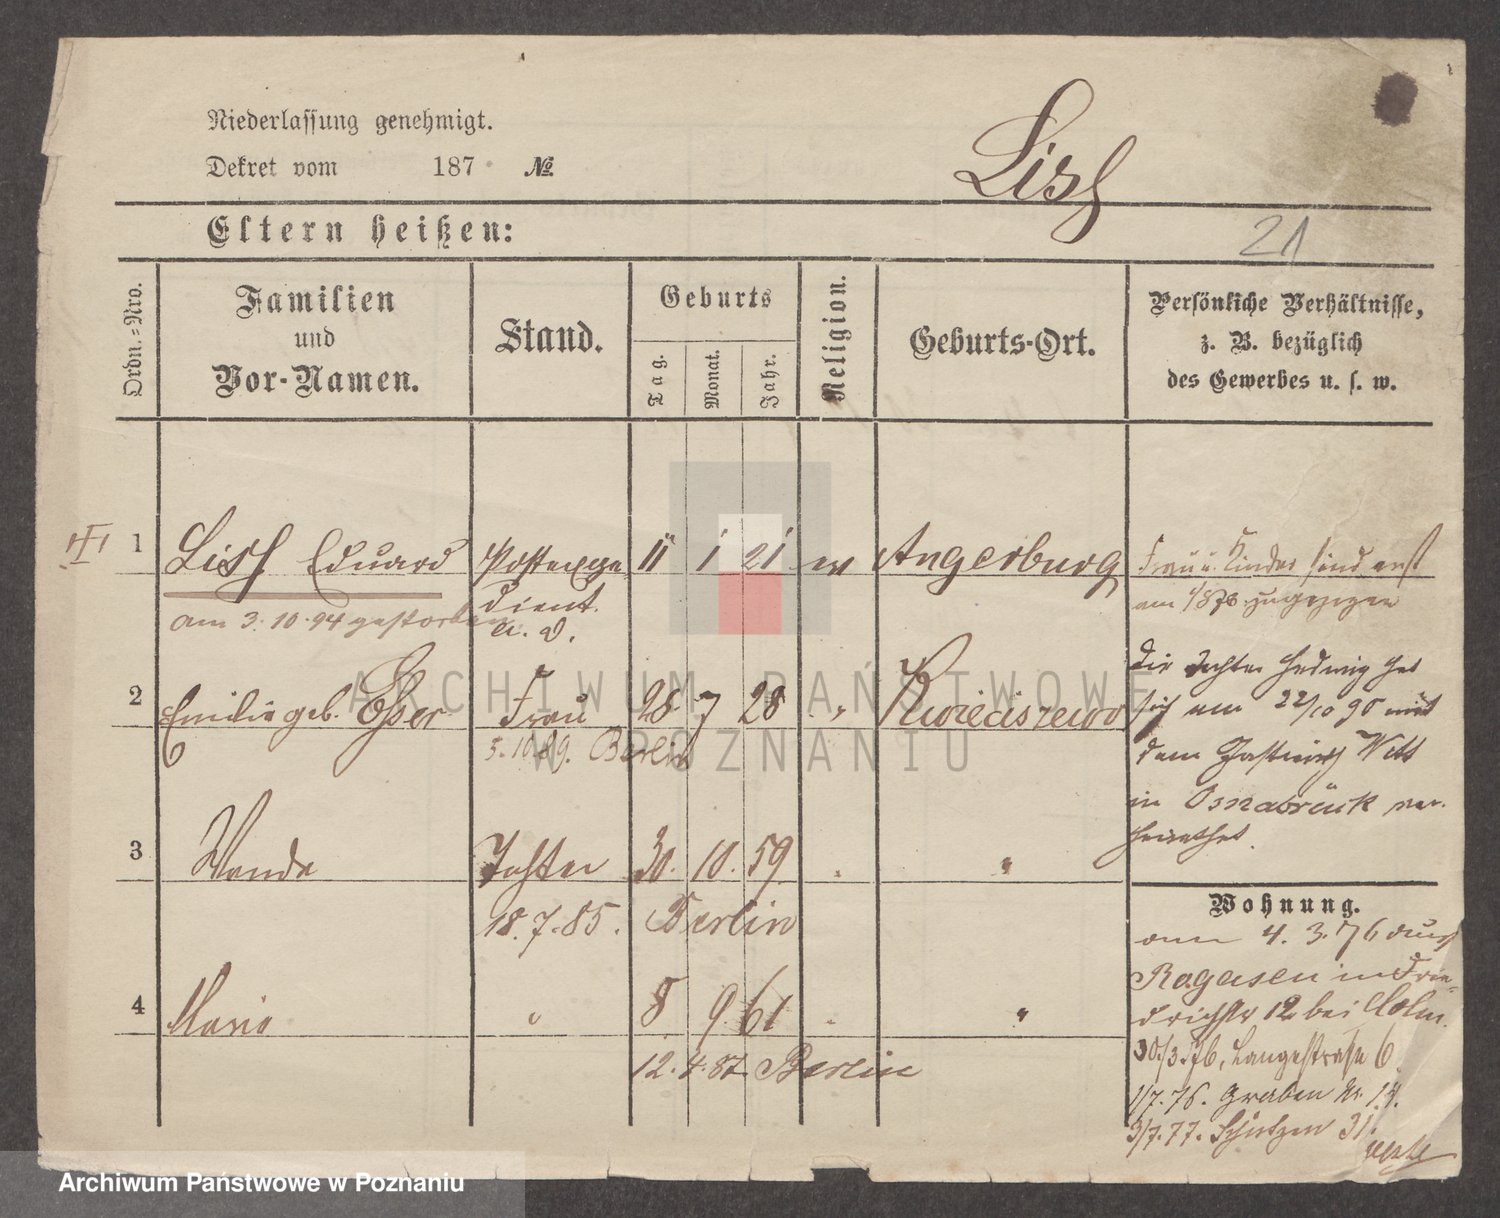 Niederlassung genehmigt.
Dekret vom 187 . №.
Lisch
Eltern heißen:
21
Ordn.-Nro.
Familien
und
Vor-Namen.
Stand.
Geburts
Tag.
Monat.
Jahr.
Religion.
Geburts-Ort.
Persönliche Verhältnisse,
z. B. bezüglich
des Gewerbes u. s. w.
1 Lisch Eduard Postexpe 11 1 21 ev Angerburg
dient.
a. D.
am 3.10.94 gestorben
Frau u. Kinder sind erst
am zugezogen
2 Emilie geb. Frau 28 7 28 " Kwieciszewo
5.10.89. Berlin
die Tochter Hedwig hat
sich am 22/10 90 mit
dem Gastwirth Witt
in Osnabrück ver-
heirathet.
3 Wanda Tochter 30. 10. 59 "
18.7.85. Berlin
4 Maria " 8 9 61 "
12.4.87. Berlin
Wohnung.
am 4.3.76 aus
Rogasen in Frie-
drichstr 12 bei
30/3.76, Langestraße 6
1/7.76. Graben Nr. 14.
3/7.77. Schützen 31.
ARCHIWUM PAŃSTWOWE
W POZNANIU
Archiwum Państwowe w Poznaniu